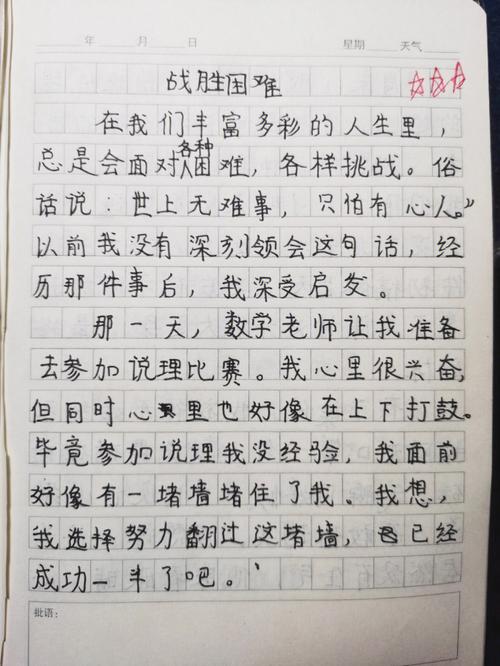 年 月 日 星期 天气
战胜困难
在我们丰富多彩的人生里，
总是会面对各种困难，各样挑战。俗
话说：世上无难事，只怕有心人。”
以前我没有深刻领会这句话，经
历那件事后，我深受启发。
那一天，数学老师让我准备
去参加说理比赛。我心里很兴奋，
但同时心里也好像在上下打鼓。
毕竟参加说理我没经验，我面前
好像有一堵墙堵住了我。我想，
我选择努力翻过这堵墙，已经
成功一半了吧。
批语：